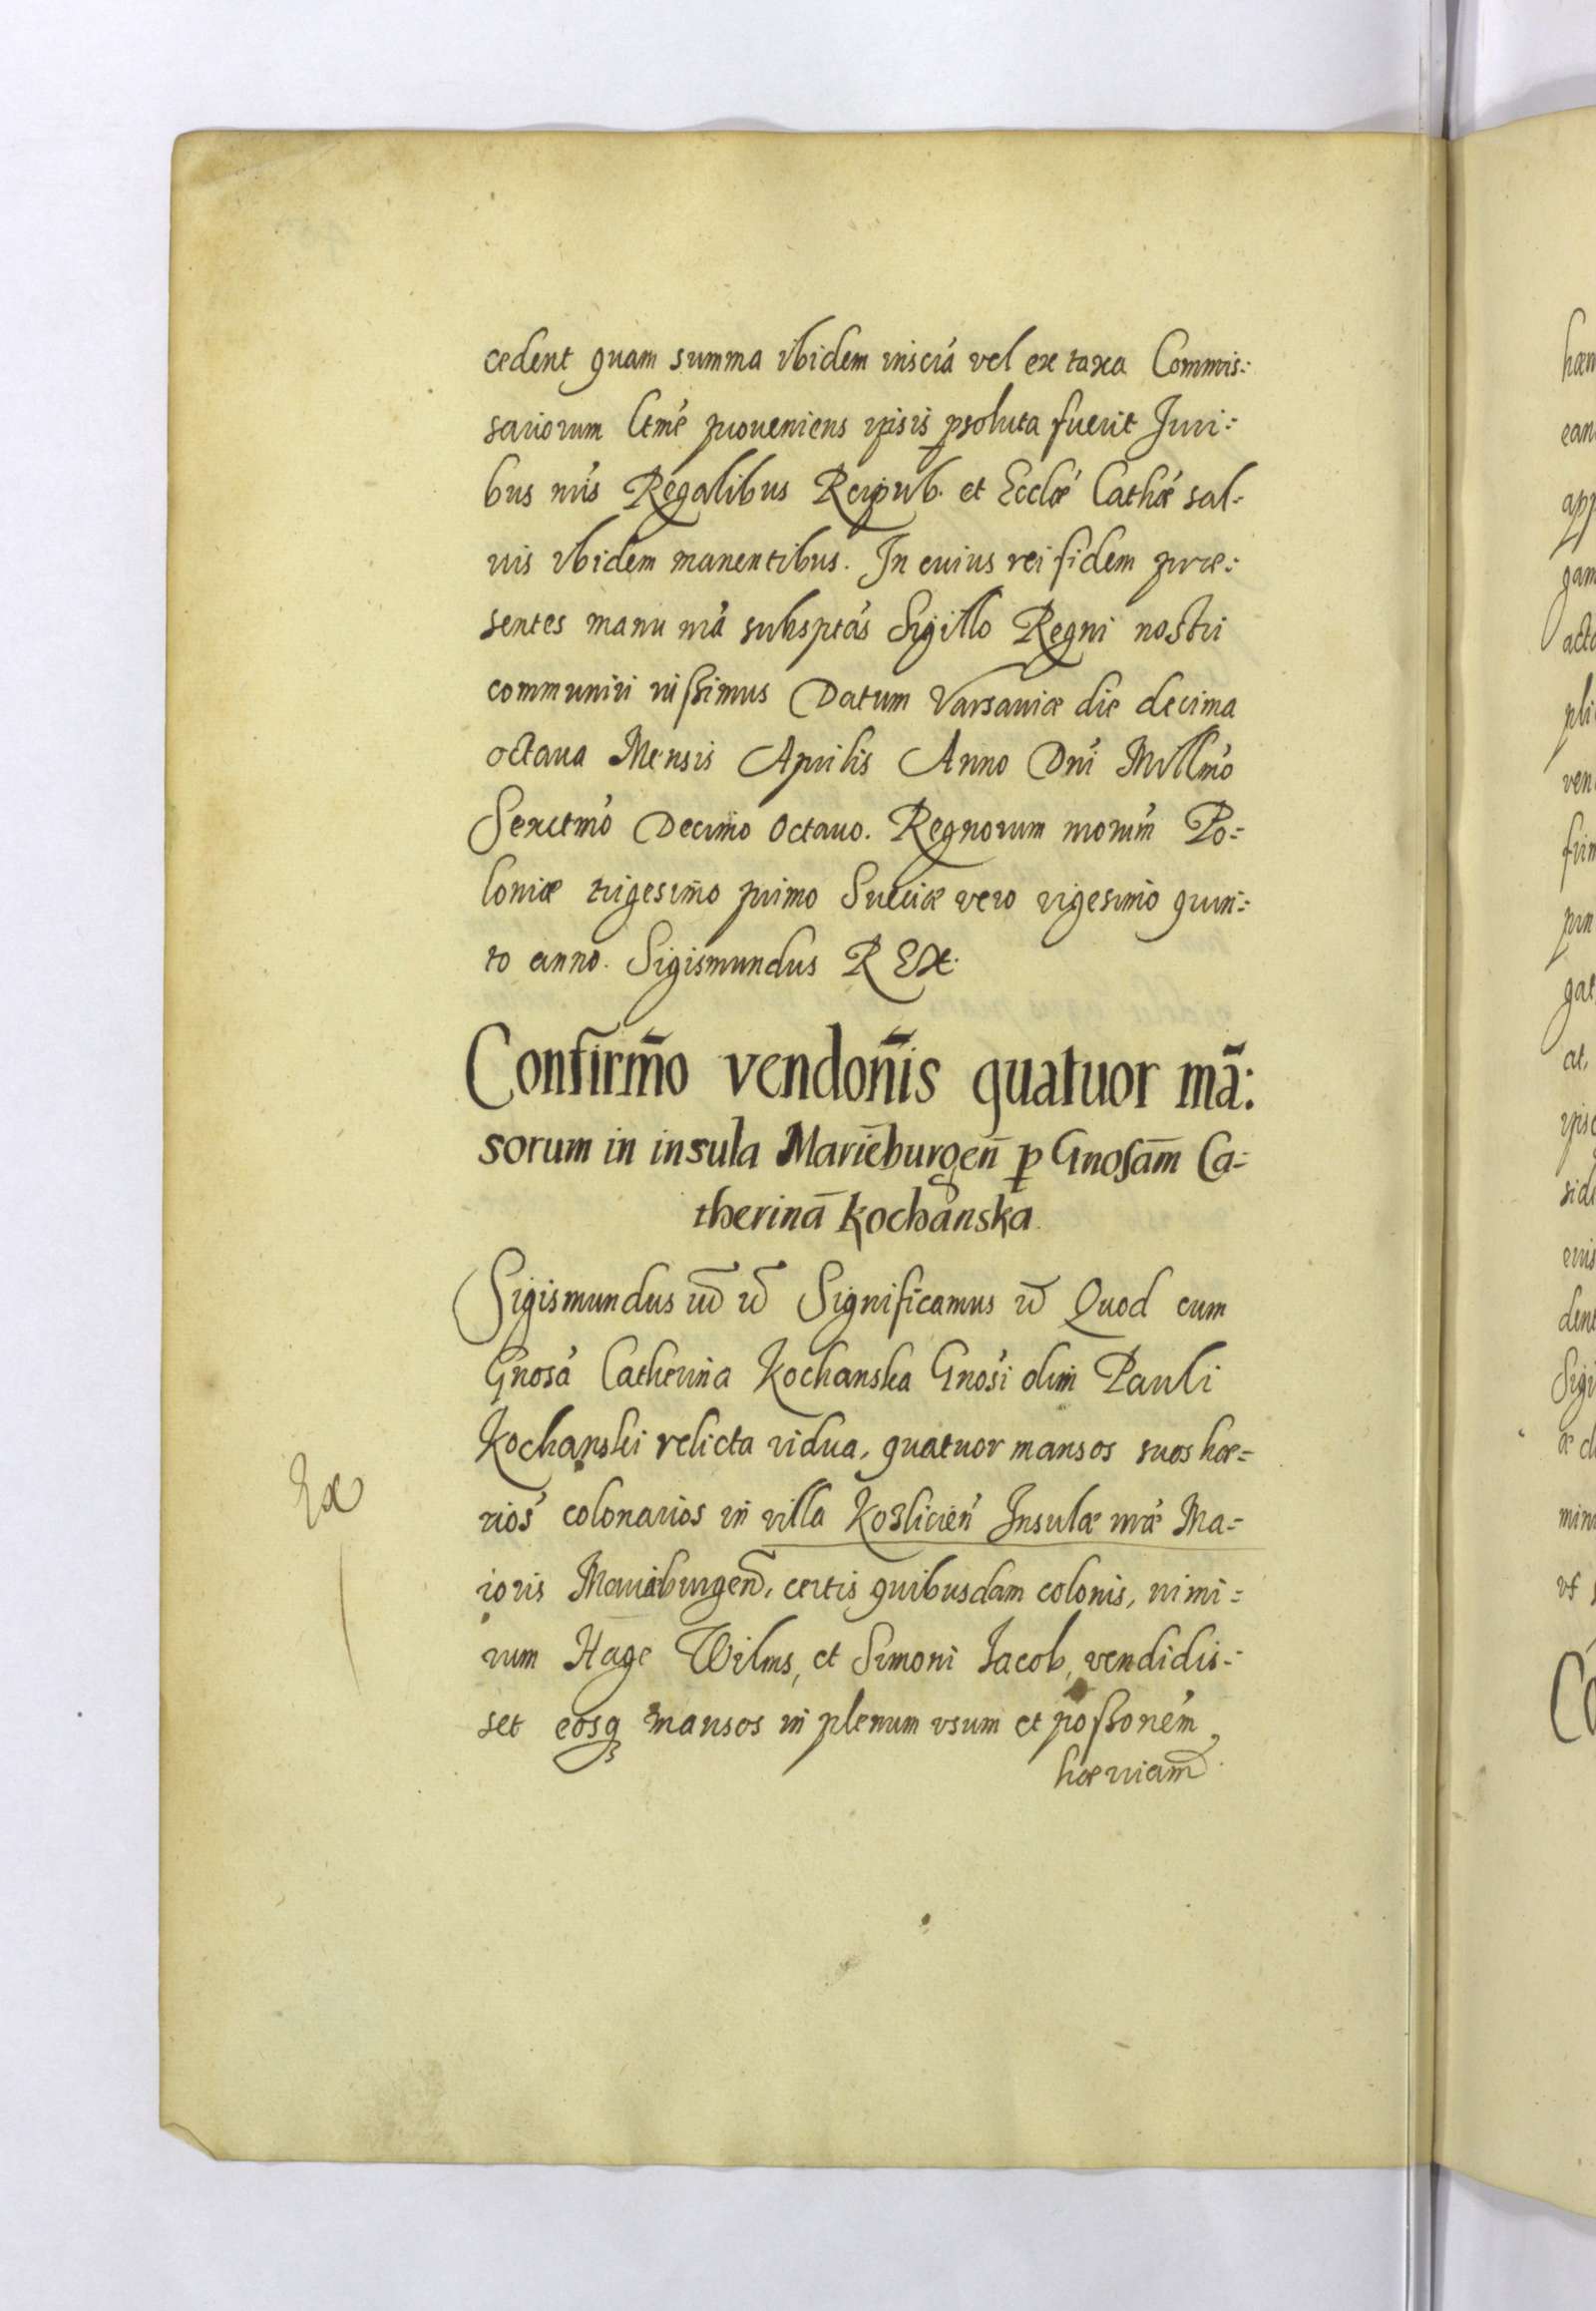 cedent quam summa ibidem inscrá vel ex taxa Commis:
sariorum Ltmé proveniens ipsis psoluta fuerit Juri:
bus nris Regalibus Reipub. et Ecclæ Cathæ sal-
vis ibidem manentibus. In cuius rei fidem præ:
sentes manu nrá subsptás Sigillo Regni nostri
communiri iussimus Datum Varsaviæ die decima
octava Mensis Aprilis Anno Dní Millmó
Sexctmó Decimo Octavo. Regnorum nrorum Po-
loniæ trigesimo primo Sueciæ vero vigesimo quin:
to anno. Sigismundus REX.
Confirmo vendonis quatuor mã:
sorum in insula Mariẽburgeñ p Gnosam Ca-
therinã Kochanska
Sigismundus Significamus Quod cum
Gnosá Catherina Kochanska Gnosi olim Pauli
Kochanski relicta vidua, quatuor mansos suos hæ-
riós colonarios in villa Kozlicień Insulæ nræ Ma-
Ex
ioris Mariæburgen, certis quibusdam colonis, nimi-
rum Hage Wilms, et Simoni Jacob, vendidis-
set eosq mansos in plenum usum et possionem,
hæriam
hæ
ean
app
gam
acto
pli
ven
prin
gat
at,
ipsi
side
eius
dent
Sigi
mini